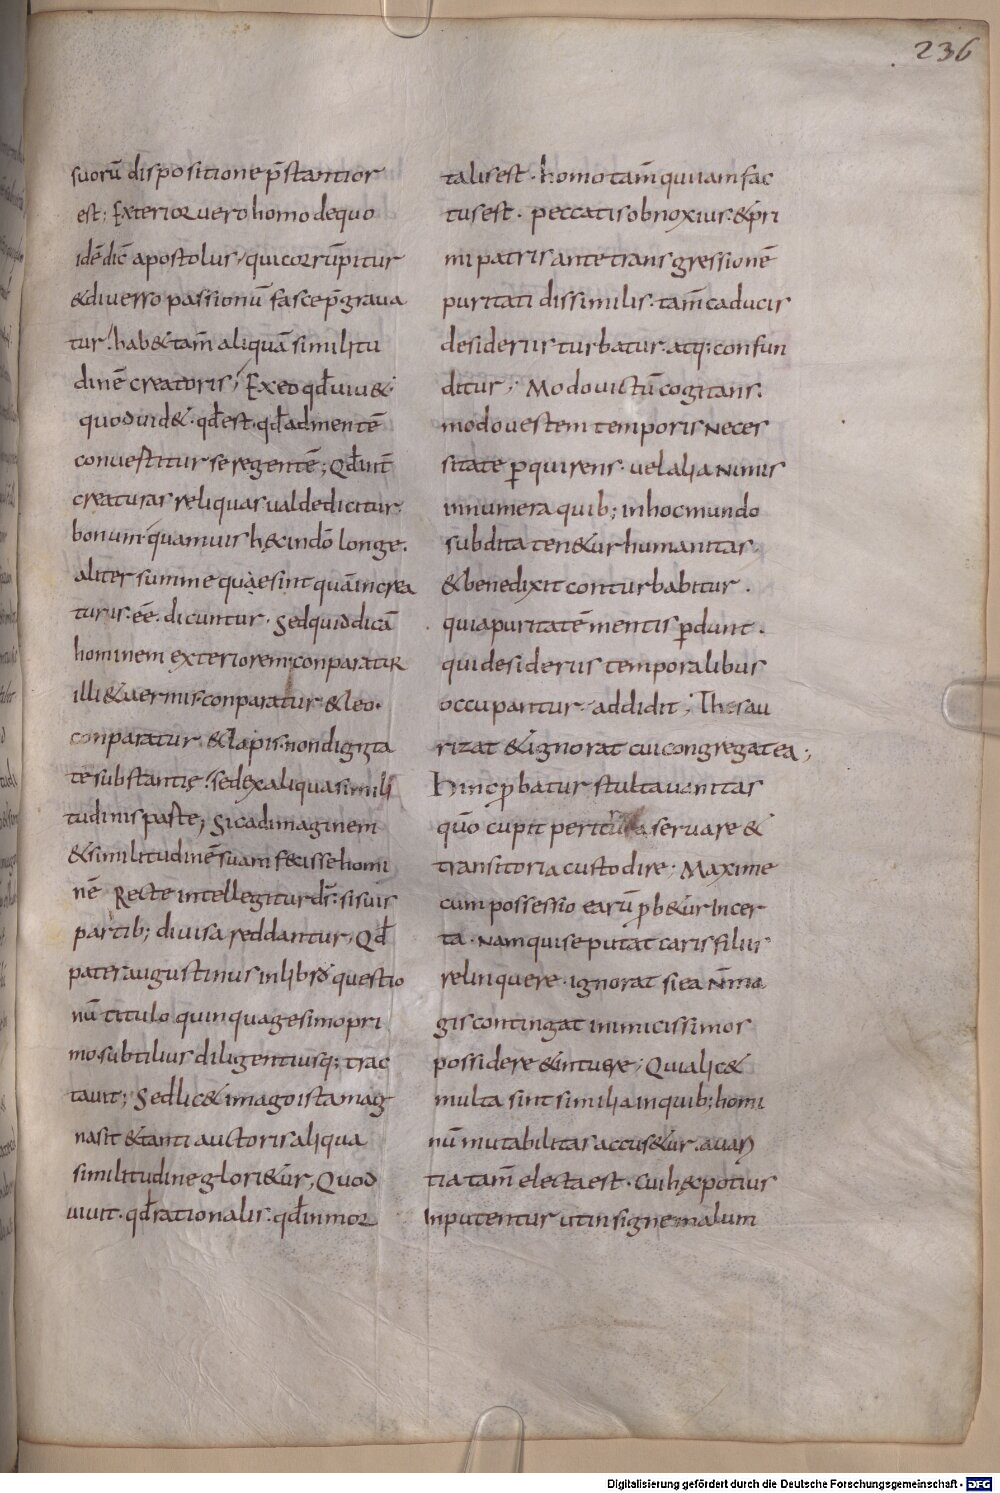 236
suorū dispositione p̄stantior
est; Exterior uero homo dequo
idē dic̄ apostolus, qui corrūpitur
& diuerso passionū fasce p̄graua
tur! hab& tam̄ aliquā similitu
dinē creatoris; Exeo qđ uiu&
quod uid&. qđ est. qđ admentē
conuestitur seregentē; Qđ int̄
creaturas reliquas ualde dicitur
bonum. quamuis h&c indō longe.
aliter summe quae sint quā increa
turis. eē. dicuntur. Sed quid dicā
hominem exteriorem. conparatur
illi & uermis. conparatur & leo.
conparatur & lapis. non dignita
te substantię. sed ex aliqua simili
tudinis parte; Sic ad imaginem
& similitudinē suam fecisse homi
nē Recte intellegitur d̄s. si suis
partib; diuisa reddantur, Qđ
pater augustinus in libro questio
nū titulo quinquagesimo pri
mo subtilius diligentiusq; trac
tauit; Sed lic& imago ista mag
na sit & tanti auctoris aliqua
similitudine glori&ur, Quod
uiuit. qđ rationalis. qđ inmor
talis est. homo tam̄ qui iam fac
tus est. peccatis obnoxius. & pri
mi patris ante transgressionē
puritati dissimilis. tam̄ caducis
desideriis turbatur. atq; confun
ditur; Modo uictū cogitans.
modo uestem temporis neces
sitate p̱quirens. uel alia nimis
innumera quib; in hoc mundo
subdita ten&ur humanitas.
& bene dixit conturbabitur.
quia puritatē mentis p̱dunt.
qui desideriis temporalibus
occupantur. addidit; Thesau
rizat & ignorat cui congregat ea;
Hinc p̱batur stulta uanitas
quō cupit peritura seruare &
transitoria custodire; Maxime
cum possessio earū p̱b&ur incer
ta. Nam qui se putat caris filiis
relinquere. ignorat si ea n̄ ma
gis contingat inimicissimos
possidere & intuere; Qui a lic&
multa sint similia in quib; homi
nū mutabilitas accus&ur. auari
tia tam̄ electa est. Cui h&c potius
Inputentur ut insigne malum
Digitalisierung gefördert durch die Deutsche Forschungsgemeinschaft - DFG